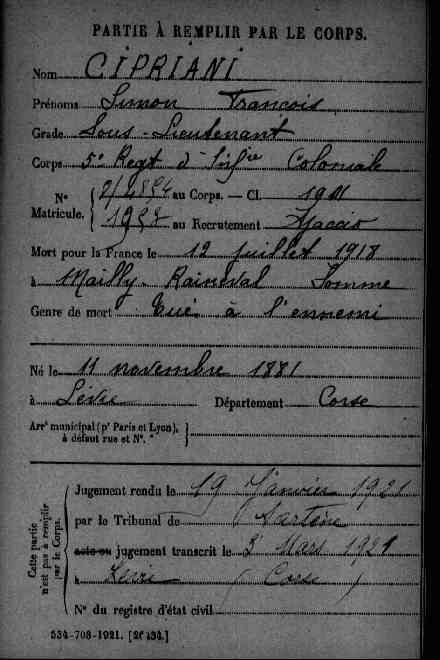 PARTIE À REMPLIR PAR LE CORPS.
Nom CIPRIANI
Prénoms Simon François
Grade Sous-Lieutenant
Corps 5e Regt d'Inf.ie Coloniale
N° 2/4854 au Corps. — Cl. 1901
Matricule. 1954 au Recrutement Ajaccio
Mort pour la France le 12 juillet 1918
à Mailly-Raineval Somme
Genre de mort Tué à l'ennemi
Né le 11 novembre 1881
à Lévie Département Corse
Arrt municipal (pr Paris et Lyon), à défaut rue et N°.
Cette partie n'est pas à remplir par le Corps.
Jugement rendu le 19 Janvier 1921
par le Tribunal de Sartène
acte ou jugement transcrit le 3 Mars 1921
à Levie (Corse)
N° du registre d'état civil
534-708-1921. [26434.]